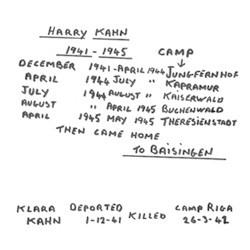 HARRY KAHN
1941 - 1945 CAMP
↓
DECEMBER 1941 - APRIL 1944 JUNGFERNHOF
APRIL 1944 JULY " KAPRAMUR
JULY 1944 AUGUST " KAISERWALD
AUGUST " APRIL 1945 BUCHENWALD
APRIL 1945 MAY 1945 THERESIENSTADT
THEN CAME HOME
TO BAISINGEN
KLARA DEPORTED KILLED CAMP RIGA
KAHN 1-12-41 26-3-42